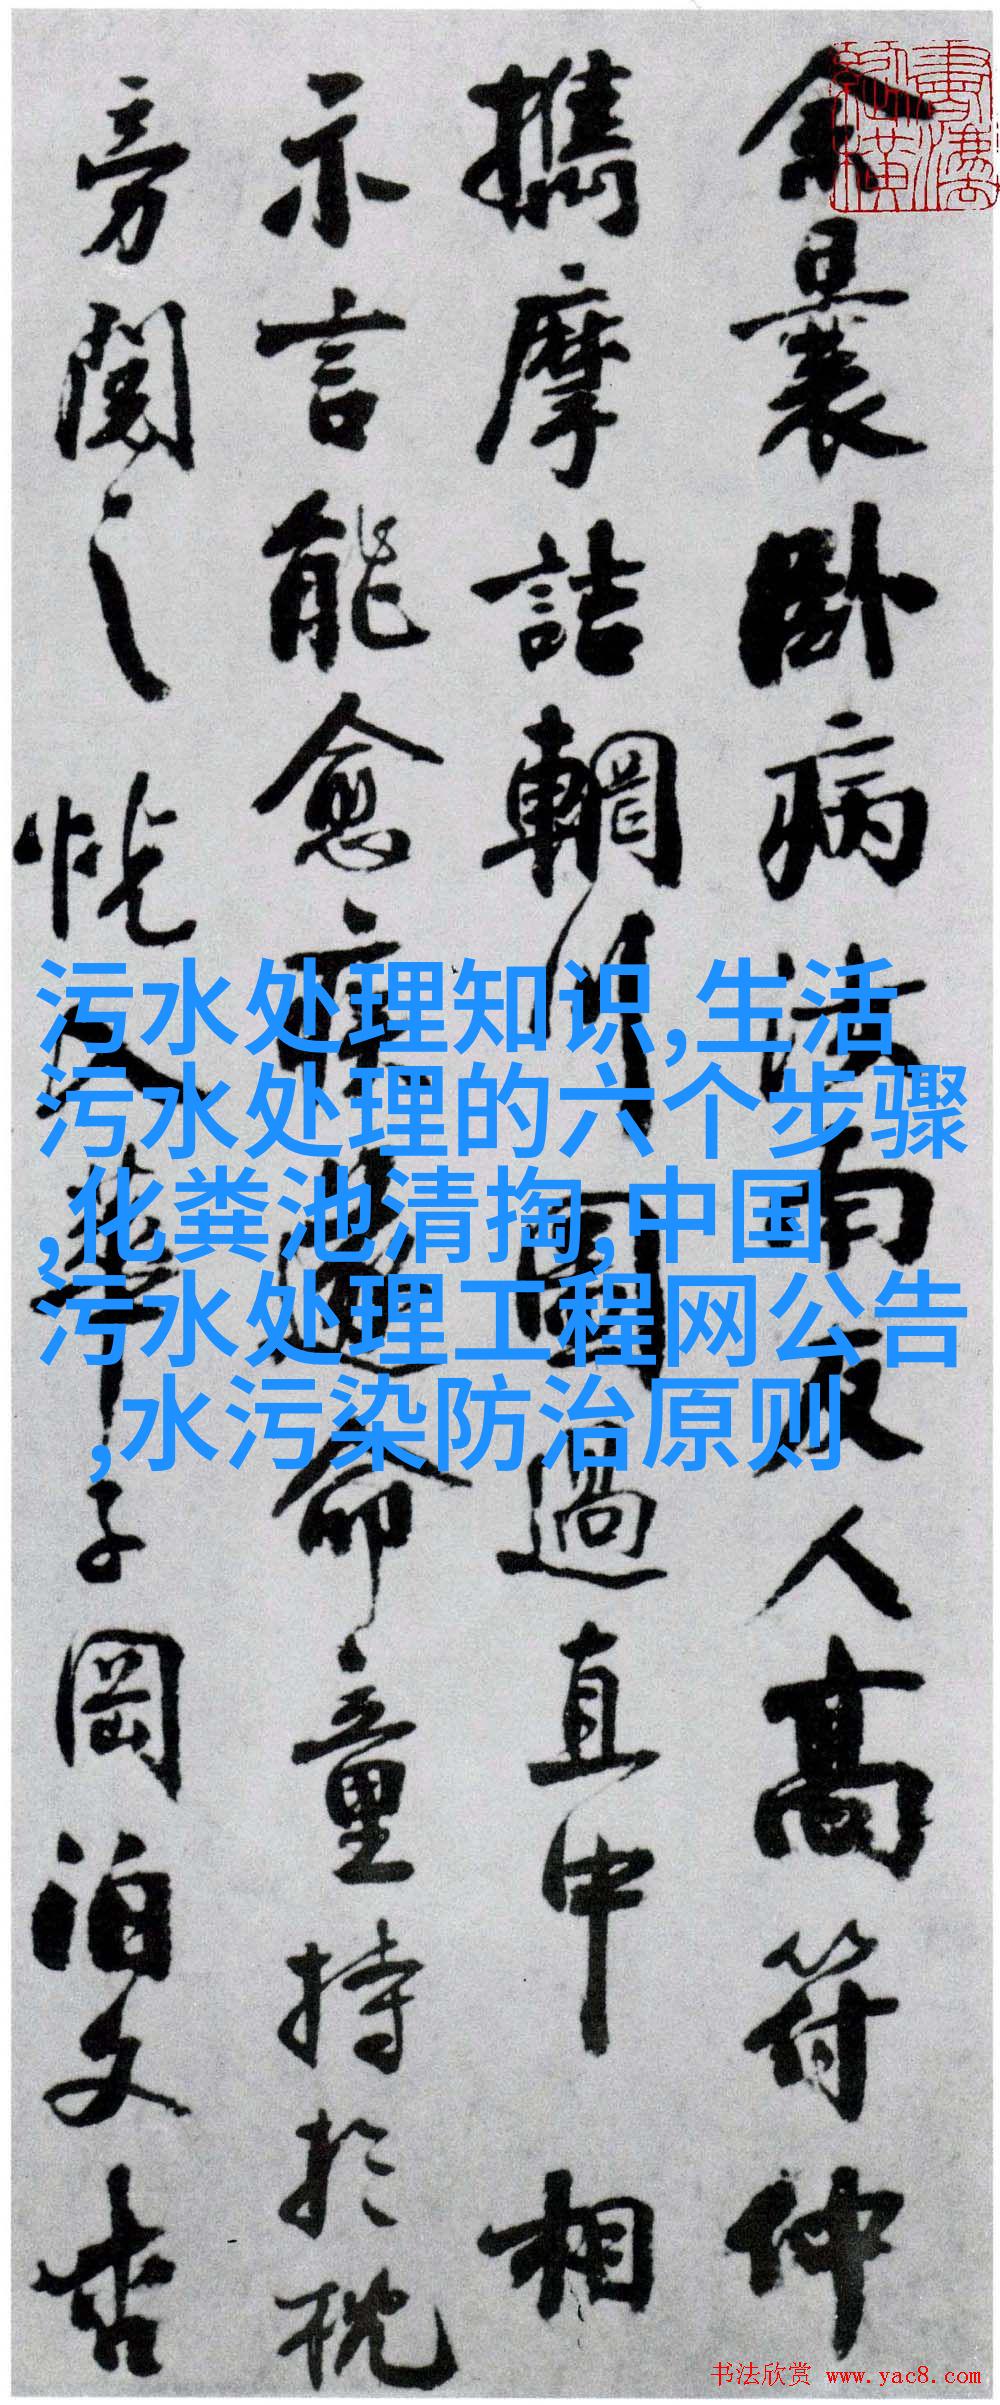 余曩卧病汝南友人高符仲
攜摩詰輞川圖過直中相
示言能愈疾遂命童持於枕
旁閱之恍入華子岡泊文杏
污水处理知识,生活
污水处理的六个步骤
,化粪池清掏,中国
污水处理工程网公告
,水污染防治原则
书法欣赏 www.yac8.com